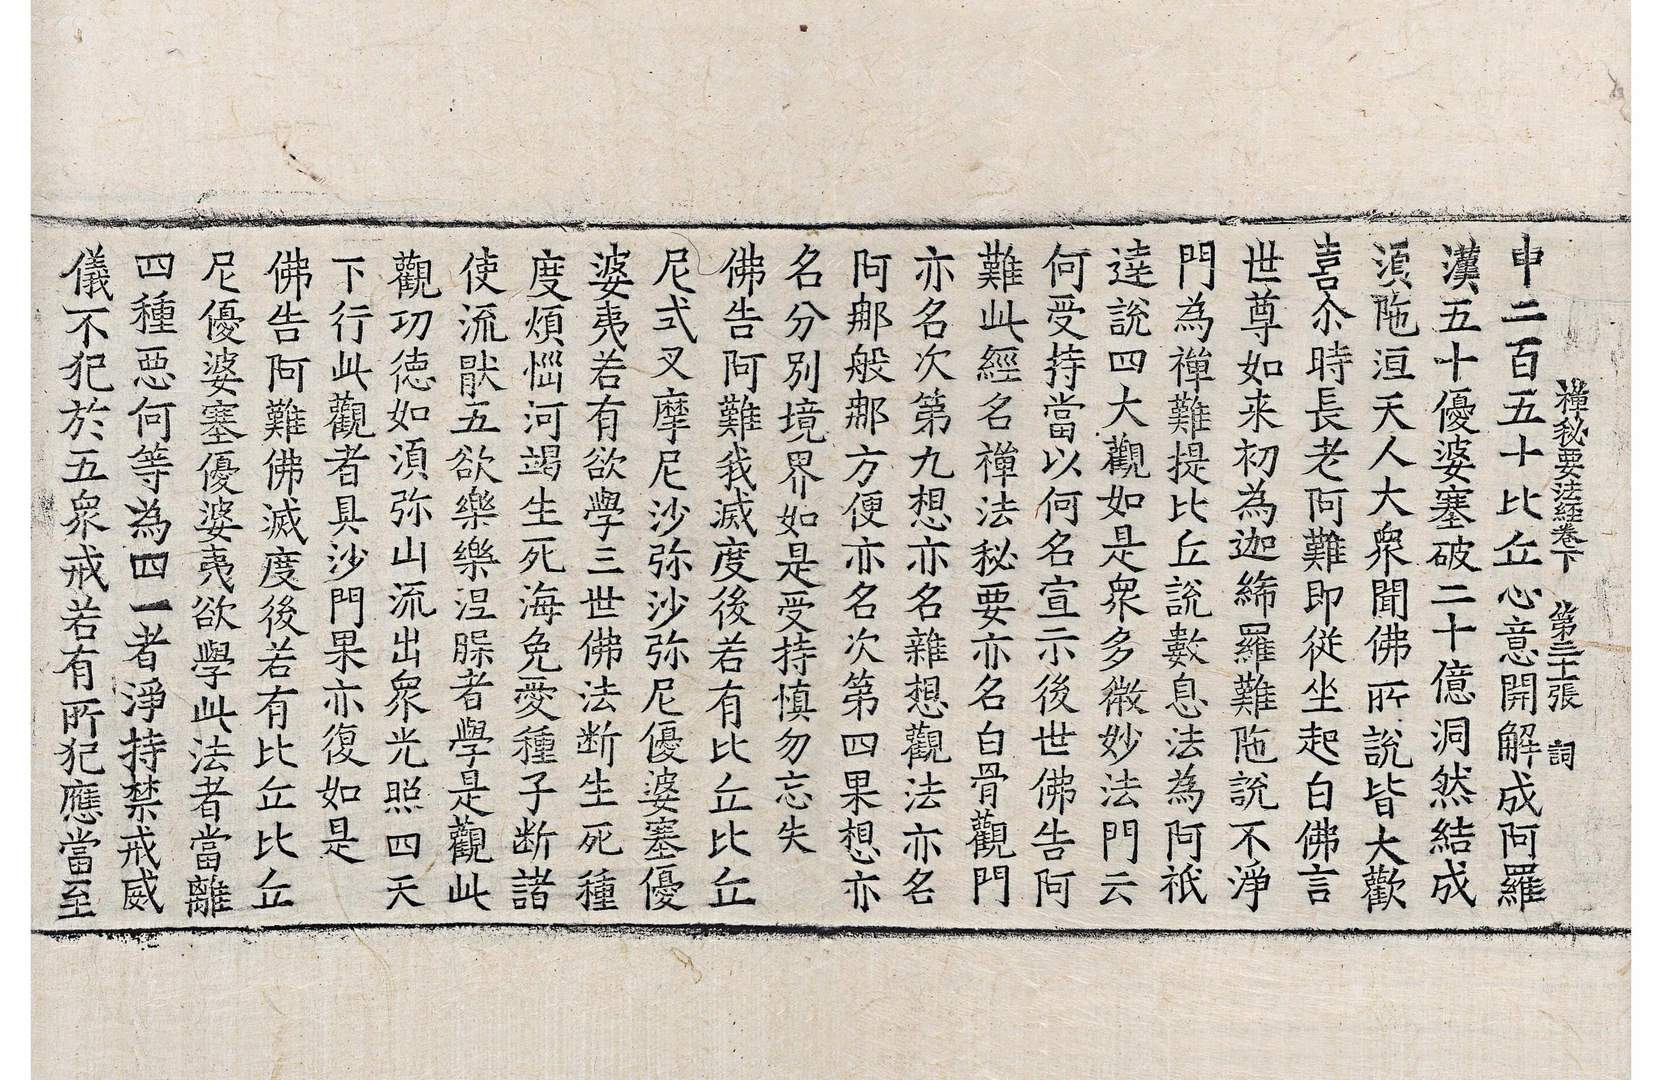 禪秘要法經卷下　第三十張　詞
申二百五十比丘心意開解成阿羅
漢五十優婆塞破二十億洞然結成
湏陁洹天人大衆聞佛所說皆大歡
喜尒時長老阿難即從坐起白佛言
世尊如来初為迦絺羅難陁說不淨
門為禪難提比丘說數息法為阿祇
達說四大觀如是衆多微妙法門云
何受持當以何名宣示後世佛告阿
難此經名禪法秘要亦名白骨觀門
亦名次第九想亦名雜想觀法亦名
阿那般那方便亦名次第四果想亦
名分別境界如是受持慎勿忘失
佛告阿難我滅度後若有比丘比丘
尼式叉摩尼沙弥沙弥尼優婆塞優
婆夷若有欲學三世佛法断生死種
度煩惱河竭生死海免愛種子断諸
使流猒五欲樂樂涅槃者學是觀此
觀功徳如湏弥山流出衆光照四天
下行此觀者具沙門果亦復如是
佛告阿難佛滅度後若有比丘比丘
尼優婆塞優婆夷欲學此法者當離
四種惡何等為四一者淨持禁戒威
儀不犯於五衆戒若有所犯應當至